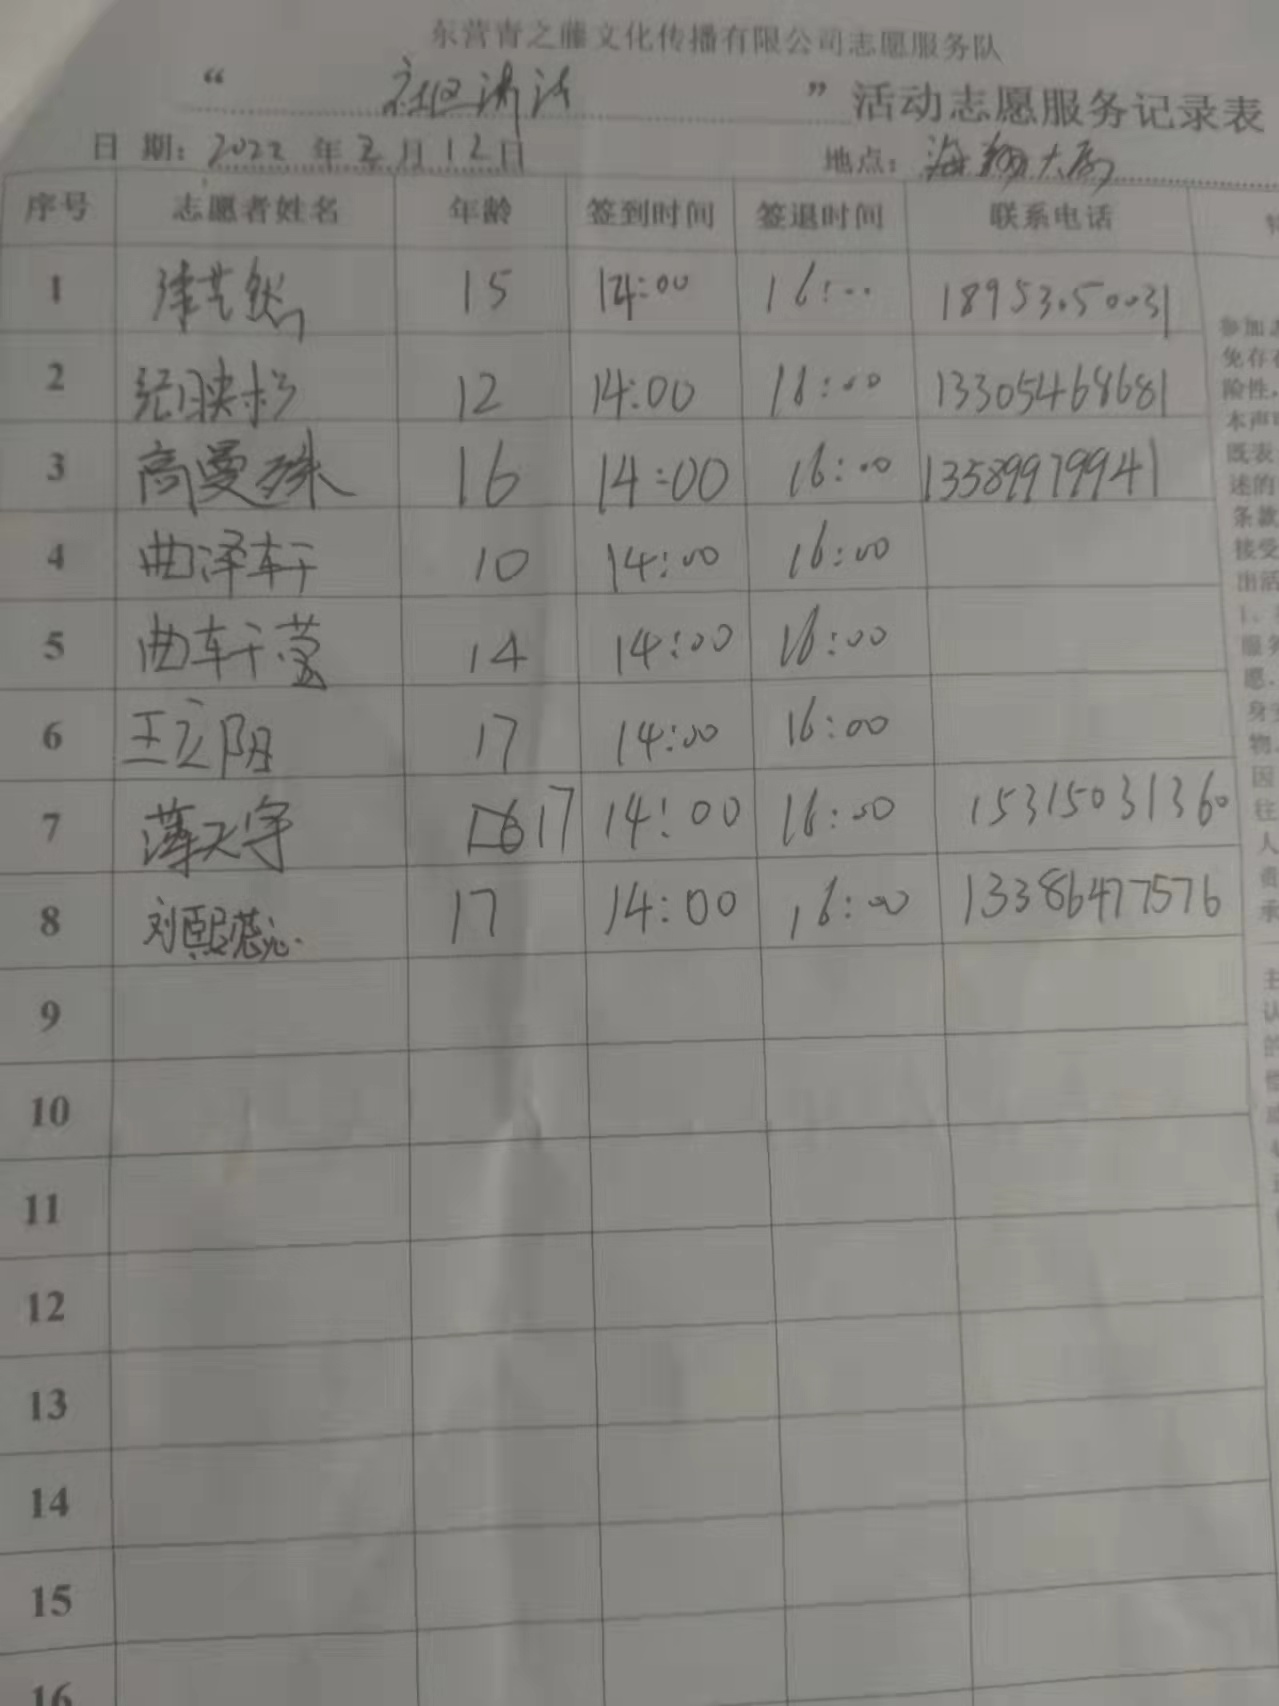 东营青之藤文化传播有限公司志愿服务队
“ 社区清洁 ” 活动志愿服务记录表
日 期: 2022 年 月 12 日 地点: 海翔大厦
序号 志愿者姓名 年龄 签到时间 签退时间 联系电话
1 15 14:00 16:00 18953050031
2 12 14:00 16:00 13305468681
3 高曼殊 16 14:00 16:00 13589979941
4 曲泽轩 10 14:00 16:00
5 曲轩莹 14 14:00 16:00
6 王立阳 17 14:00 16:00
7 薄天宇 17 14:00 16:00 15315031360
8 刘熙 17 14:00 16:00 13386477576
9
10
11
12
13
14
15
16
参加
免存在
险性,
本声
既表
述的
条款
接受
出活
1、
服务
愿、
身
物
因
往
人
责
承
主
认
的